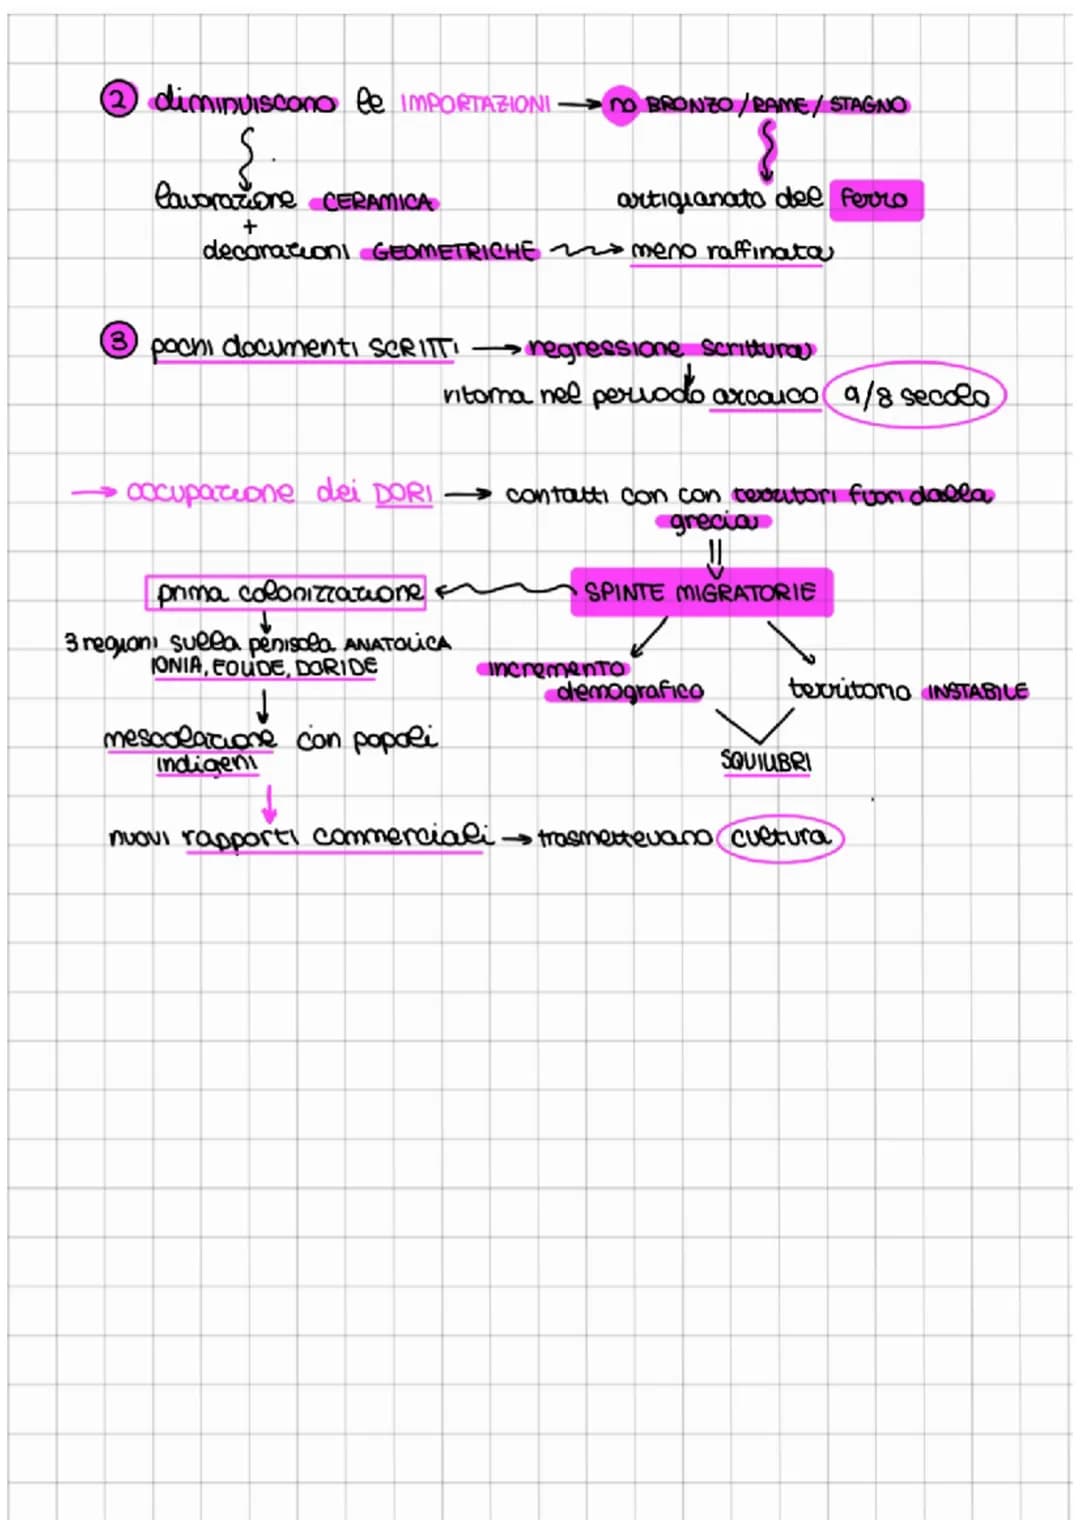 2 diminuiscono le IMPORTAZIONI → no BRONZO / RAME / STAGNO
lavorazione CERAMICA
artigianato del ferro
+
decorazioni GEOMETRICHE → meno raffinata
3 pochi documenti SCRITTI → regressione scrittura
ritorna nel periodo arcaico 9/8 secolo
→ occupazione dei DORI → contatti con con territori fuori dalla
grecia
prima colonizzazione ← SPINTE MIGRATORIE
3 regioni sulla penisola ANATOLICA
IONIA, EOLIDE, DORIDE
incremento
demografico
territorio INSTABILE
mescolazione con popoli
indigeni
SQUILIBRI
nuovi rapporti commerciali → trasmettevano cultura